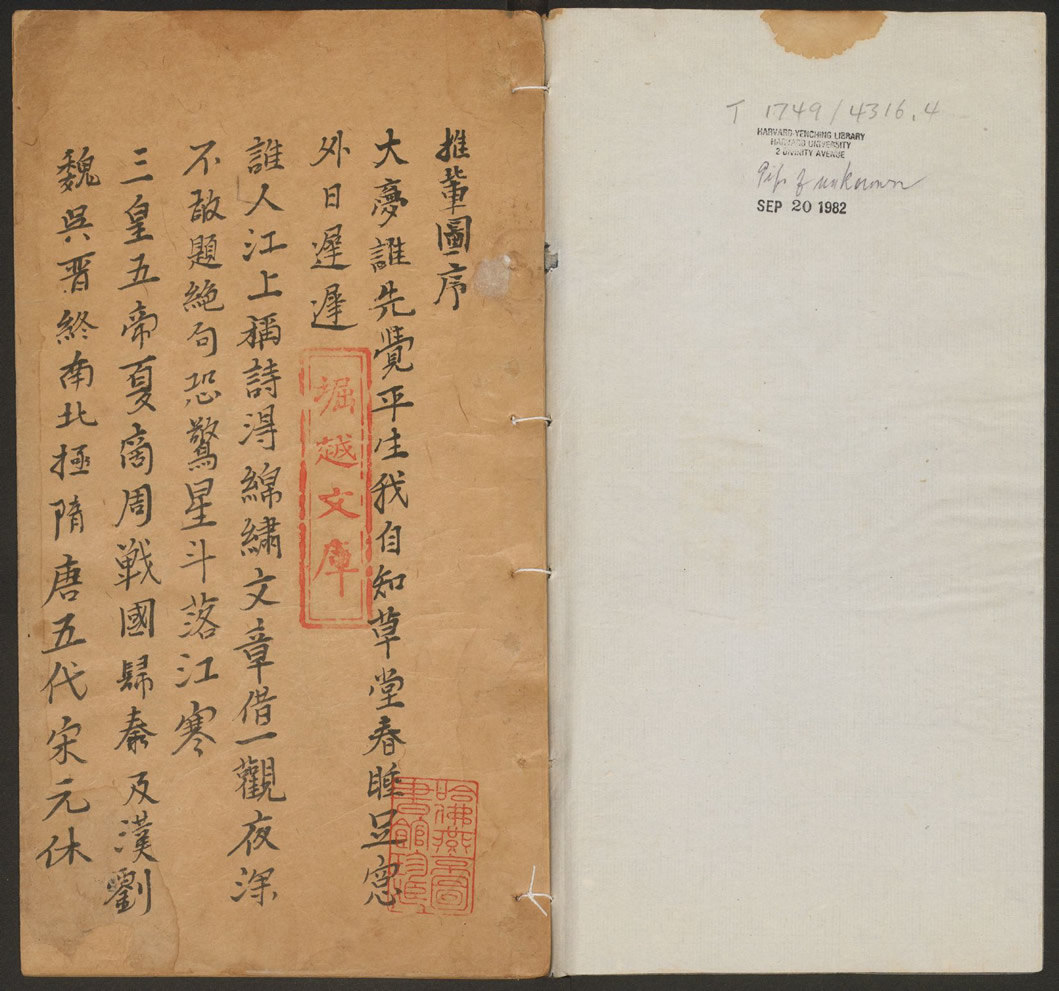 T 1749/4316.4
HARVARD-YENCHING LIBRARY
HARVARD UNIVERSITY
2 DIVINITY AVENUE
Gift of unknown
SEP 20 1982
推軰圖序
大夢誰先覺平生我自知草堂春睡足窓
外日遲遲
誰人江上稱詩淂綿繡文章借一觀夜深
不敢題絶句恐驚星斗落江寒
三皇五帝夏商周戰國歸秦及漢劉
魏吳晋終南北極隋唐五代宋元休
堀越文庫
哈佛燕京圖
書館珍藏印